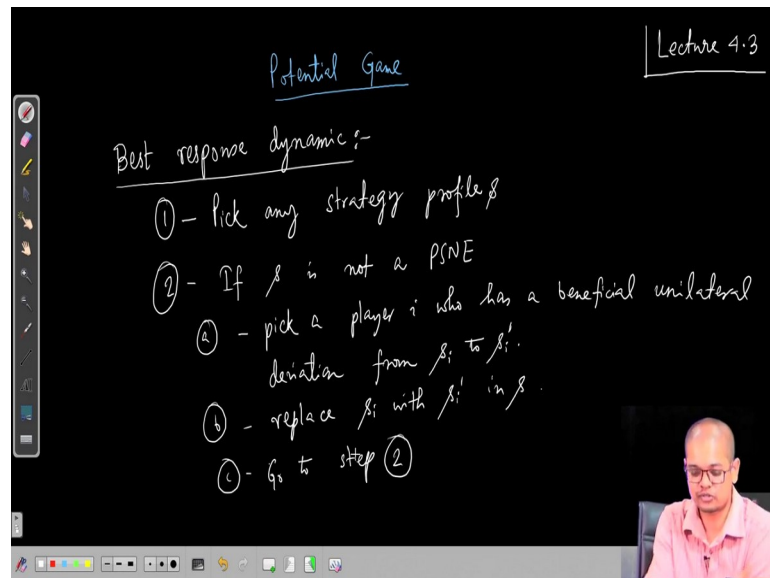 Lecture 4.3
Potential Game
Best response dynamic :-
① - Pick any strategy profile s
② - If s is not a PSNE
ⓐ - pick a player i who has a beneficial unilateral
deviation from sᵢ to sᵢ'.
ⓑ - replace sᵢ with sᵢ' in s.
ⓒ - Go to step ②